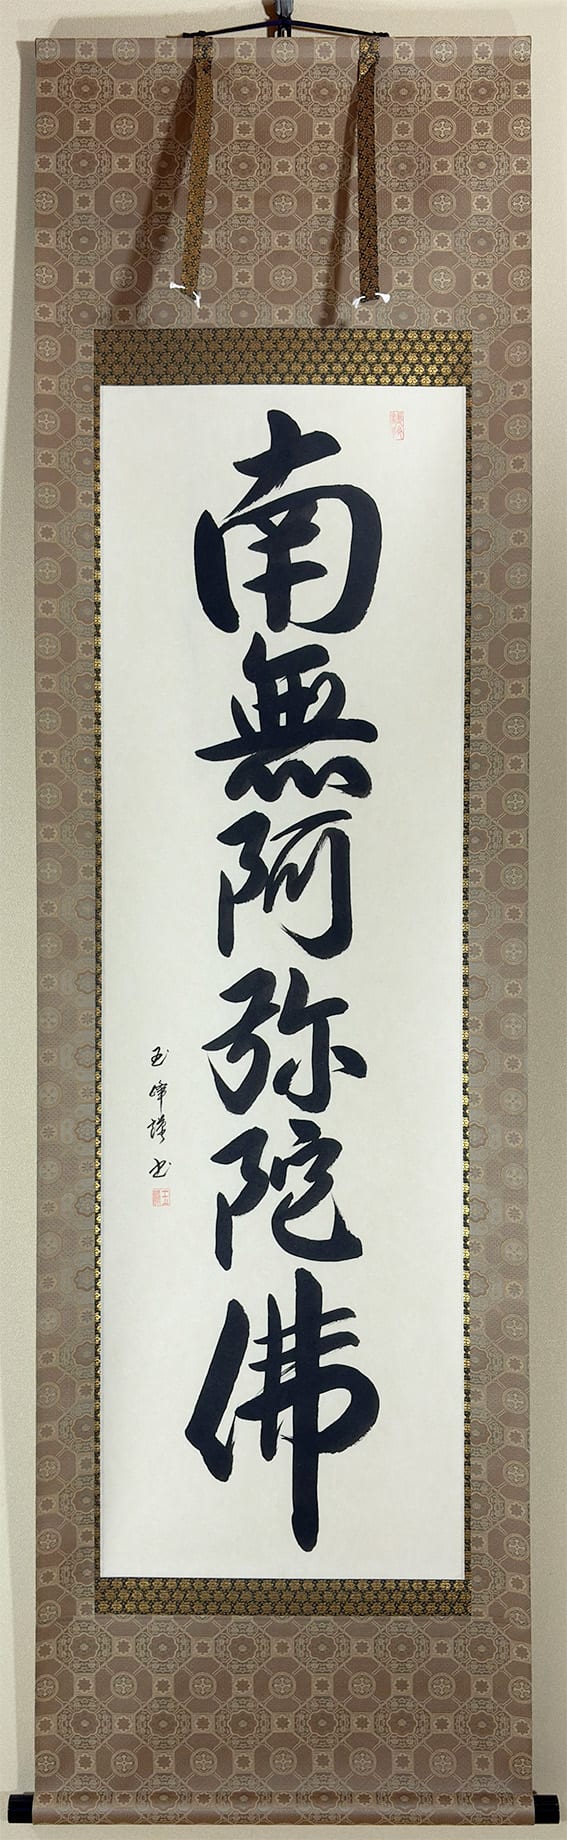 南無阿弥陀佛
玉峰瑛書